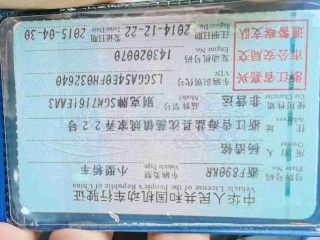 中华人民共和国机动车行驶证
Vehicle License of the People's Republic of China
号牌号码
Plate No.
浙F890KR
车辆类型
Vehicle Type
小型轿车
所有人
Owner
住址
Address
浙江省海盐县
使用性质
Use Character
非营运
品牌型号
Model
别克牌SGM7161LEA3
浙江省嘉兴
市公安局交
通警察支队
车辆识别代号
VIN
LSGGA54E0FH032640
发动机号码
Engine No.
143020070
注册日期
Register Date
2014-12-22
发证日期
Issue Date
2015-04-30